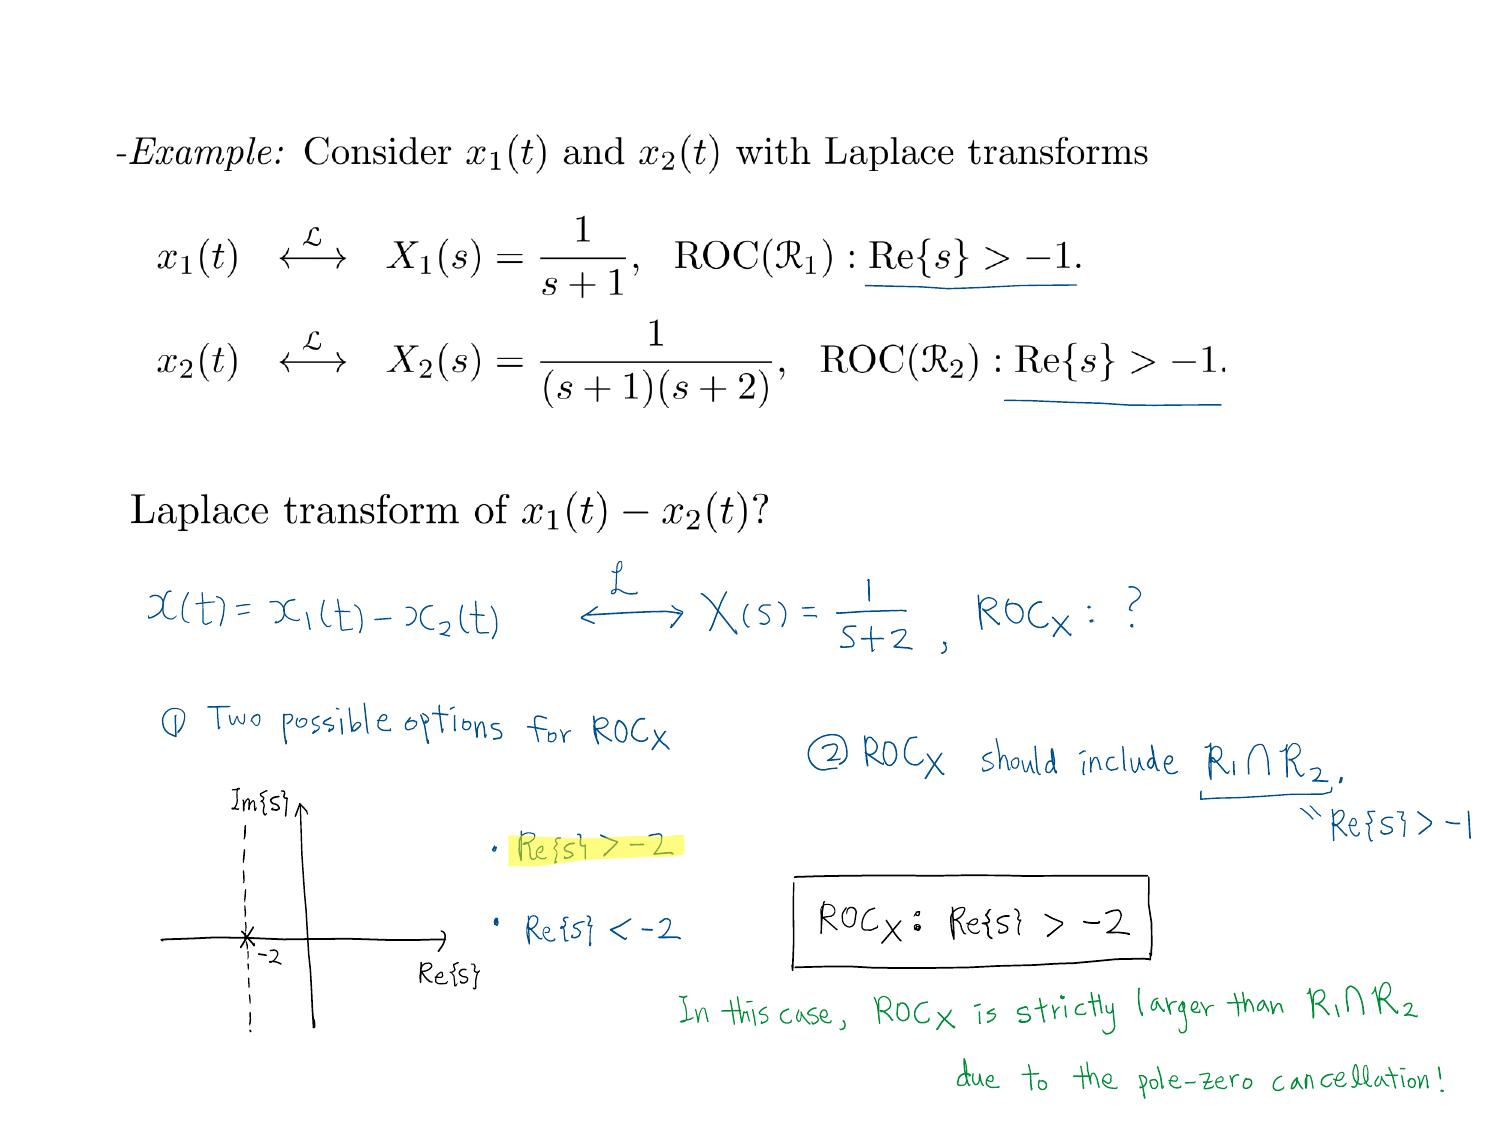 -Example: Consider x₁(t) and x₂(t) with Laplace transforms
x₁(t) ⟷ℒ X₁(s) = 1/(s + 1), ROC(ℛ₁) : Re{s} > −1.
x₂(t) ⟷ℒ X₂(s) = 1/((s + 1)(s + 2)), ROC(ℛ₂) : Re{s} > −1.
Laplace transform of x₁(t) − x₂(t)?
x(t) = x₁(t) − x₂(t) ⟷ℒ X(s) = 1/(s+2), ROCₓ : ?
① Two possible options for ROCₓ
② ROCₓ should include R₁∩R₂.
〃 Re{s} > −1
Im{s}
• Re{s} > −2
• Re{s} < −2
−2
Re{s}
ROCₓ : Re{s} > −2
In this case, ROCₓ is strictly larger than R₁∩R₂
due to the pole-zero cancellation!